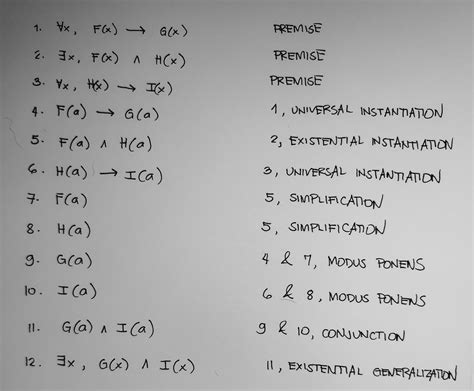 1. ∀x, F(x) → G(x) PREMISE
2. ∃x, F(x) ∧ H(x) PREMISE
3. ∀x, H(x) → I(x) PREMISE
4. F(a) → G(a) 1, UNIVERSAL INSTANTIATION
5. F(a) ∧ H(a) 2, EXISTENTIAL INSTANTIATION
6. H(a) → I(a) 3, UNIVERSAL INSTANTIATION
7. F(a) 5, SIMPLIFICATION
8. H(a) 5, SIMPLIFICATION
9. G(a) 4 & 7, MODUS PONENS
10. I(a) 6 & 8, MODUS PONENS
11. G(a) ∧ I(a) 9 & 10, CONJUNCTION
12. ∃x, G(x) ∧ I(x) 11, EXISTENTIAL GENERALIZATION